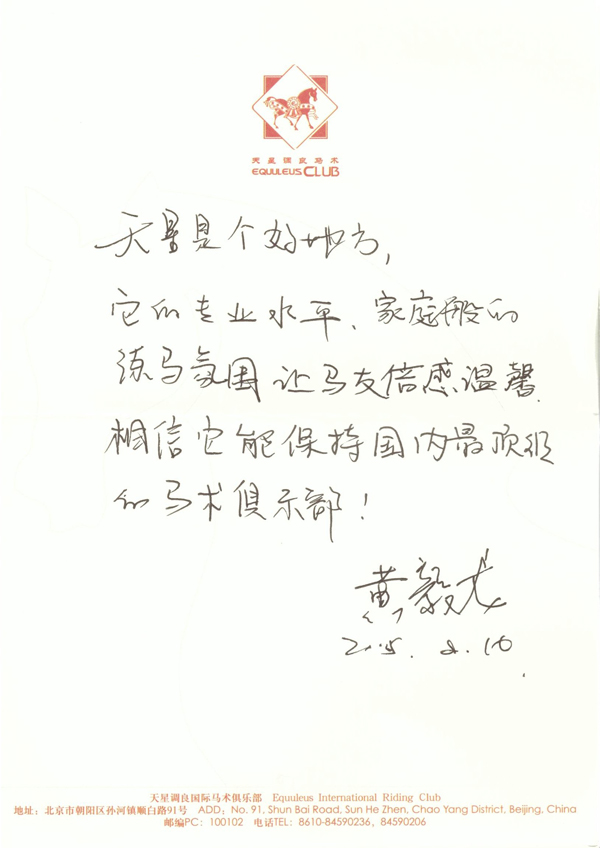 天星调良马术
EQUULEUS CLUB
天星是个好地方,
它的专业水平、家庭般的
练马氛围让马友倍感温馨.
相信它能保持国内最顶级
的马术俱乐部!
黄毅龙
天星调良国际马术俱乐部 Equuleus International Riding Club
地址:北京市朝阳区孙河镇顺白路91号 ADD: No. 91, Shun Bai Road, Sun He Zhen, Chao Yang District, Beijing, China
邮编PC: 100102 电话TEL: 8610-84590236, 84590206